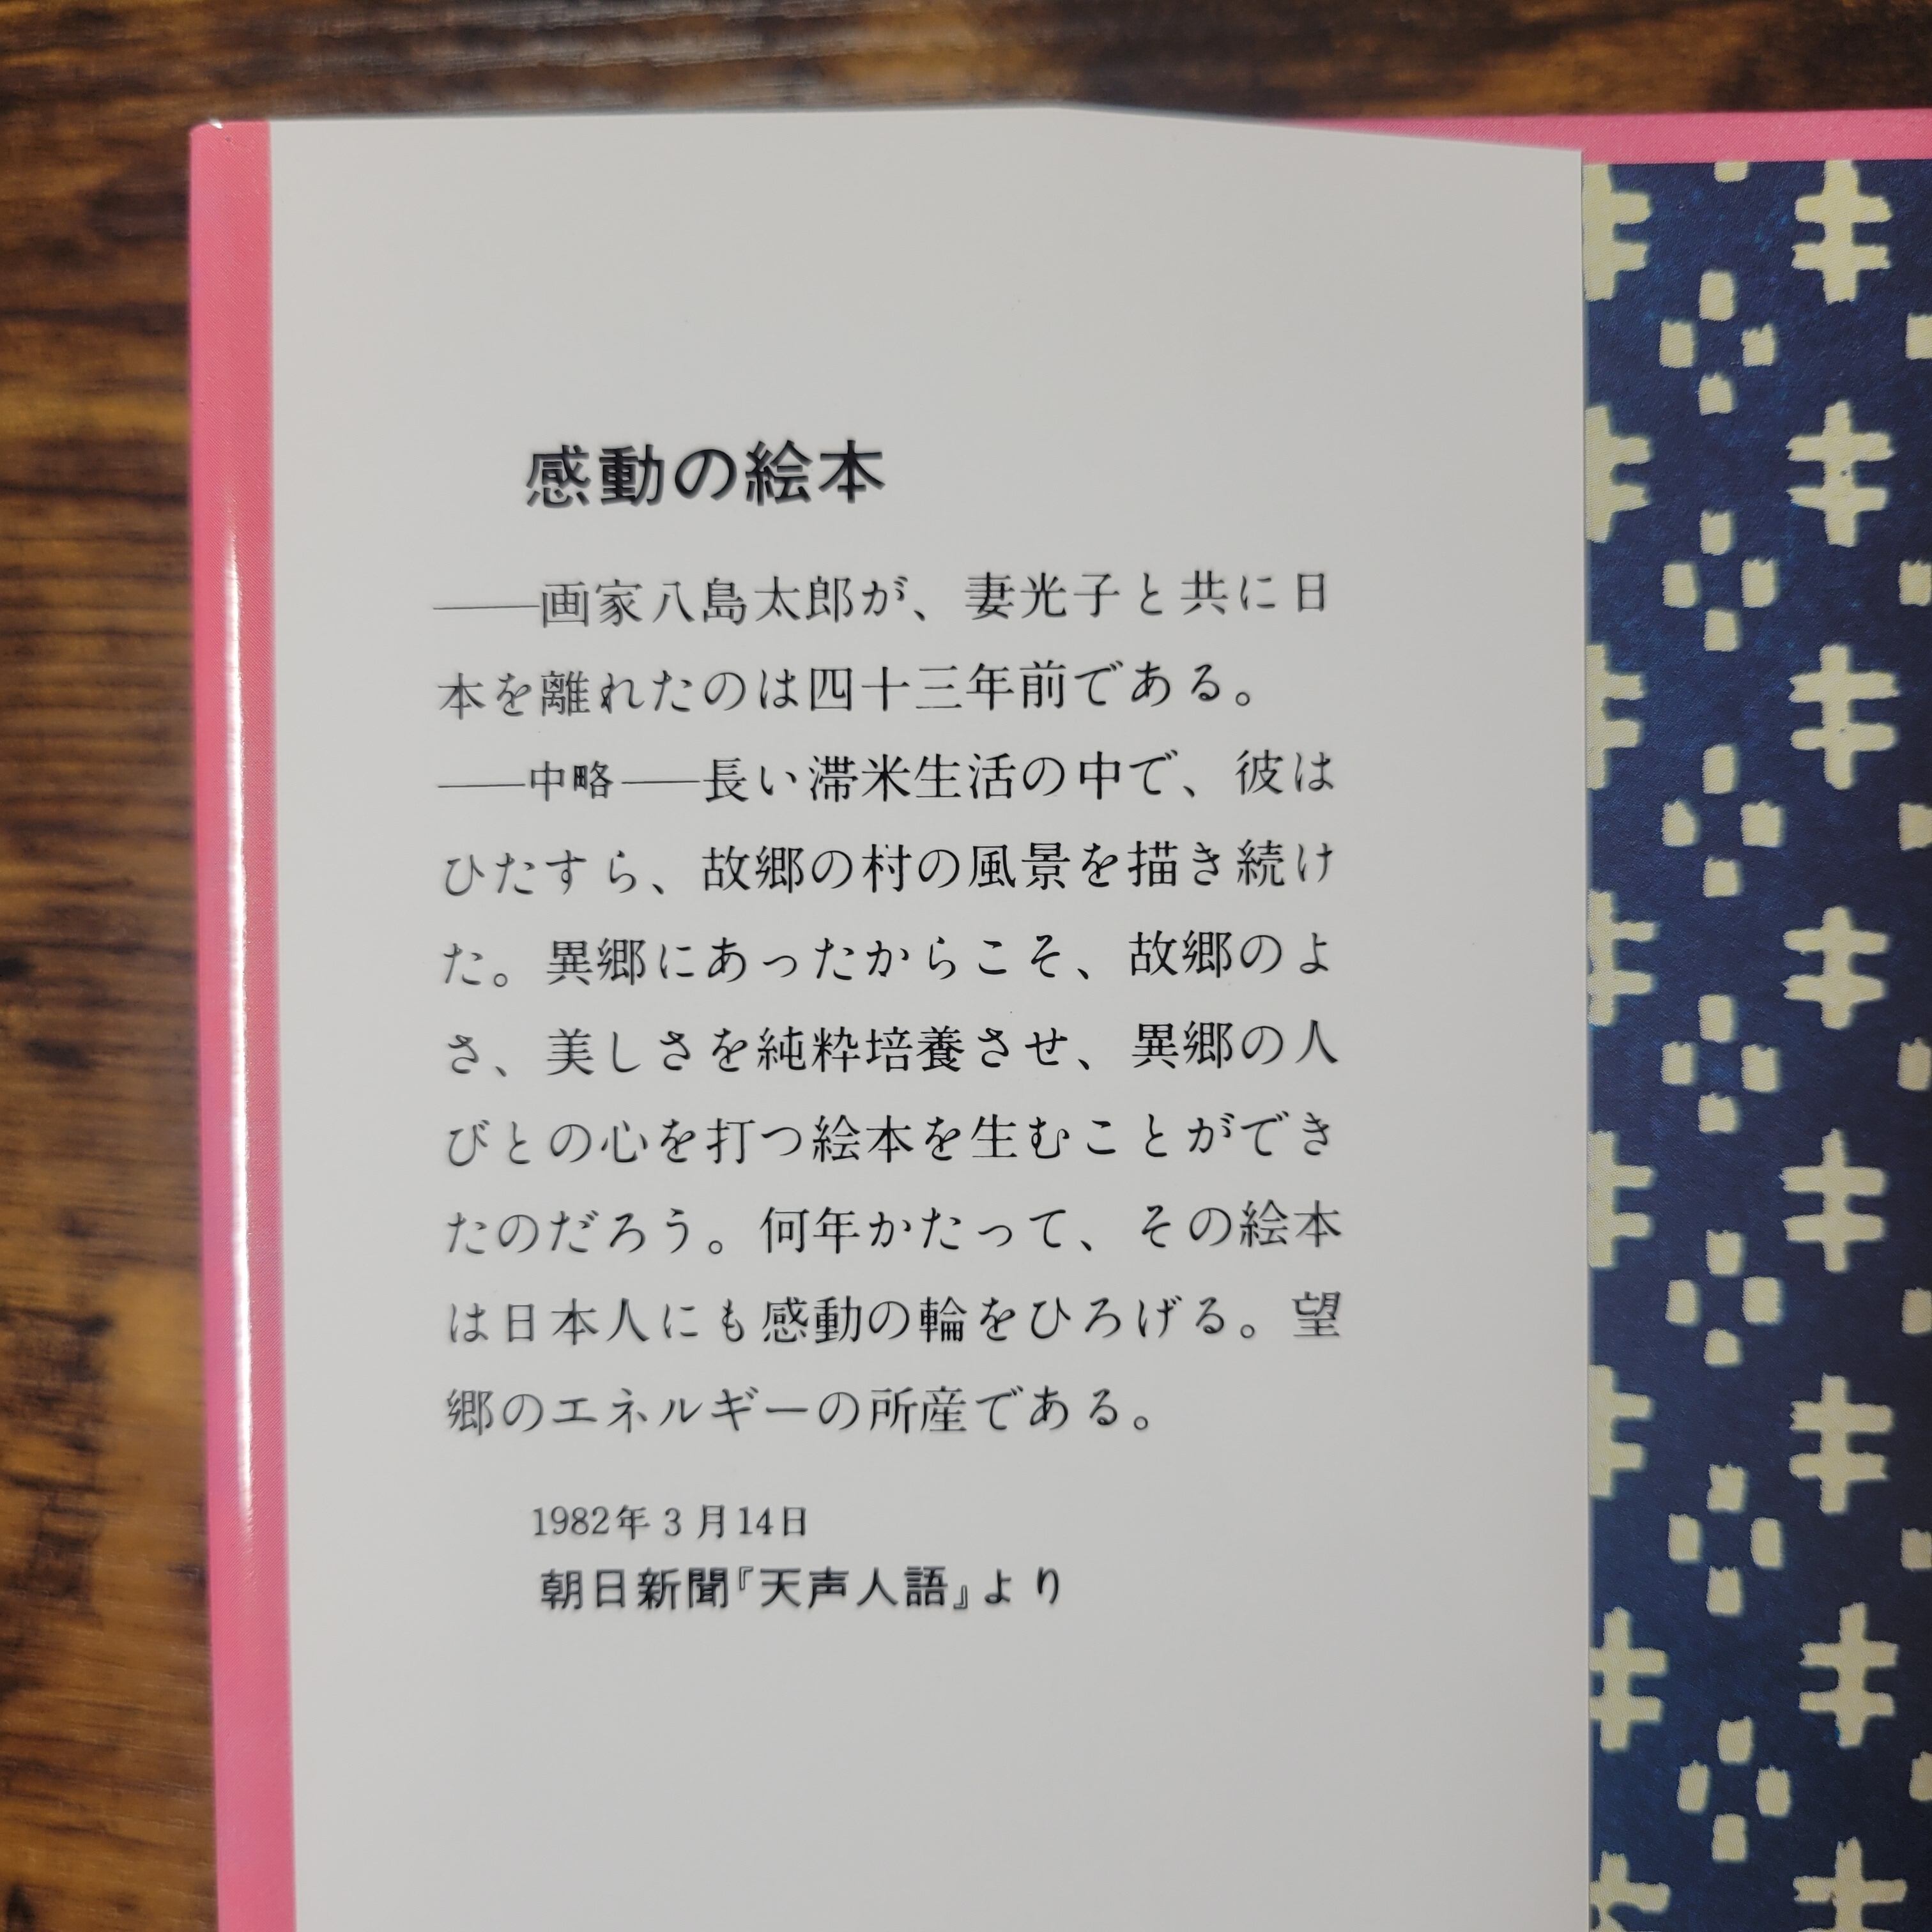 感動の絵本
――画家八島太郎が、妻光子と共に日
本を離れたのは四十三年前である。
――中略――長い滞米生活の中で、彼は
ひたすら、故郷の村の風景を描き続け
た。異郷にあったからこそ、故郷のよ
さ、美しさを純粋培養させ、異郷の人
びとの心を打つ絵本を生むことができ
たのだろう。何年かたって、その絵本
は日本人にも感動の輪をひろげる。望
郷のエネルギーの所産である。
1982年3月14日
朝日新聞『天声人語』より